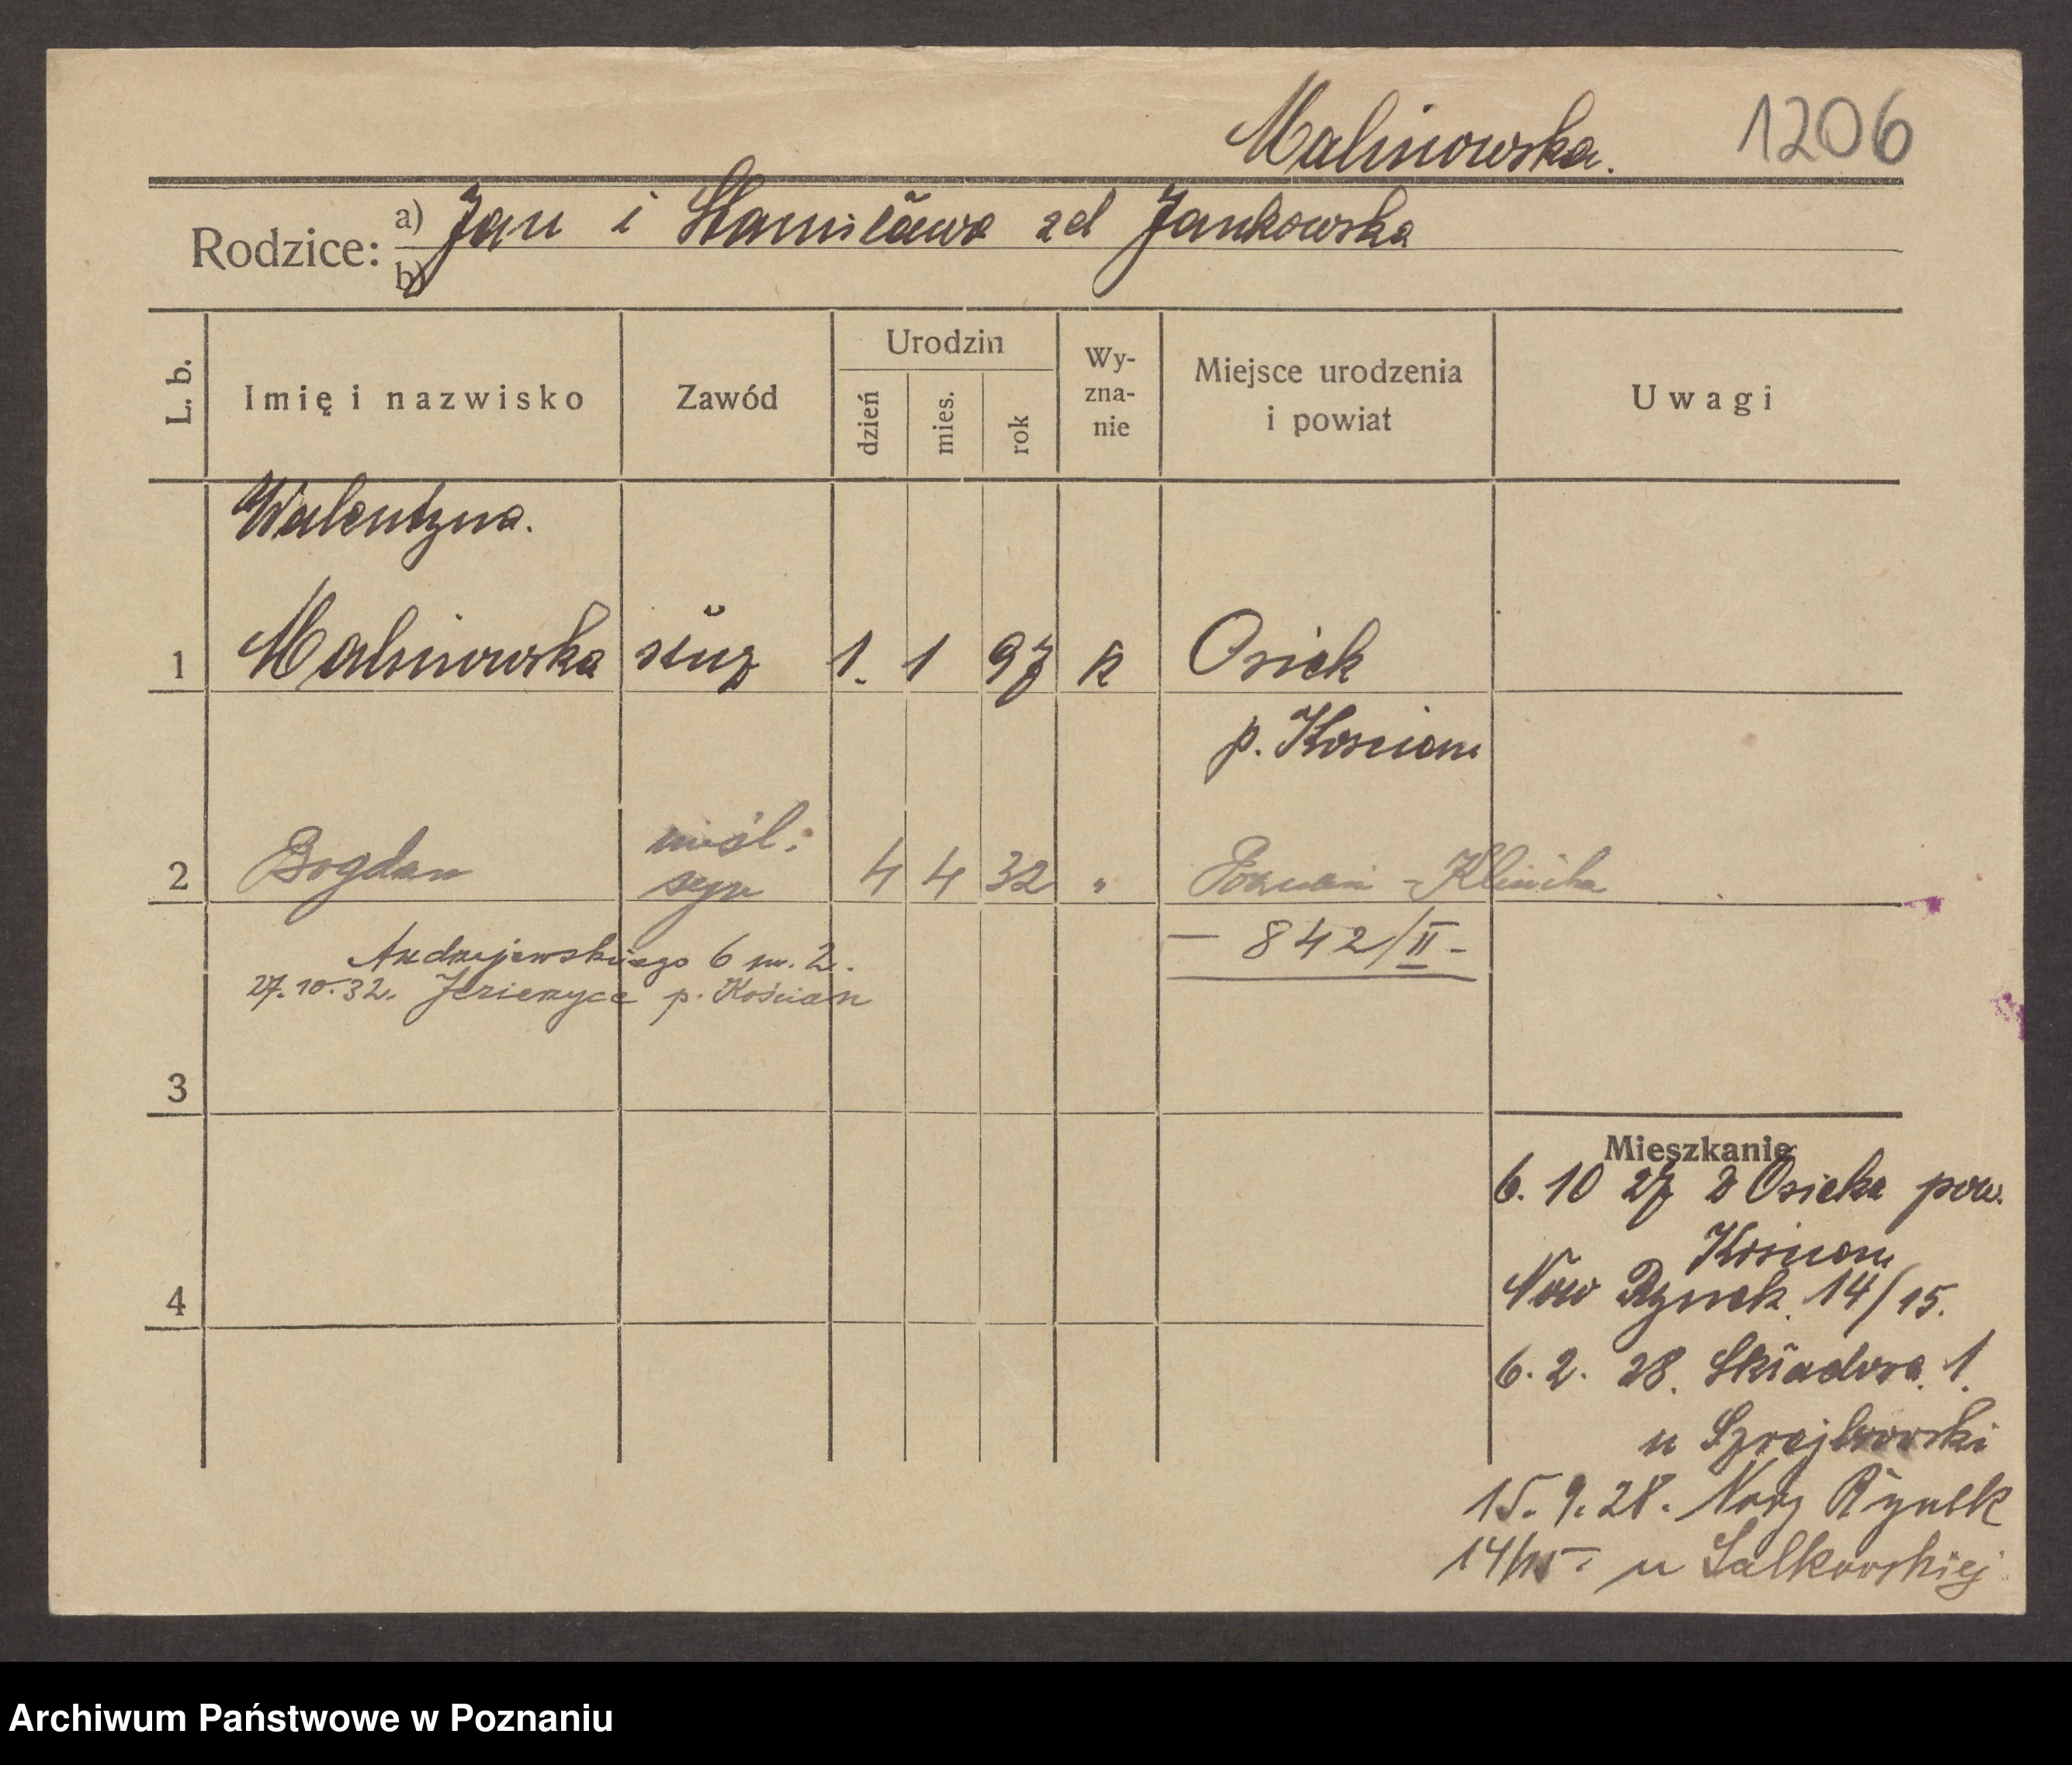 Malinowska. 1206
Rodzice: a) Jan i Stanisława zd Jankowska
b)
L. b. Imię i nazwisko Zawód Urodzin dzień mies. rok Wy-zna-nie Miejsce urodzenia i powiat Uwagi
Walentyna.
1 Malinowska służ 1. 1 97 k Osiek
p. Kościan
nieśl.
2 Bogdan syn 4 4 32 " Poznań - Klinika
Andrzejewskiego 6 m. 2. — 842/II -
27.10.32. Jerzierzyce p. Kościan
3
Mieszkanie
6. 10 27 z Osieka pow.
Kościan
4 Now Rynek 14/15.
6. 2. 28. Składowa 1.
u
15. 9. 28. Nowy Rynek
14/15 u Salkowskiej
Archiwum Państwowe w Poznaniu